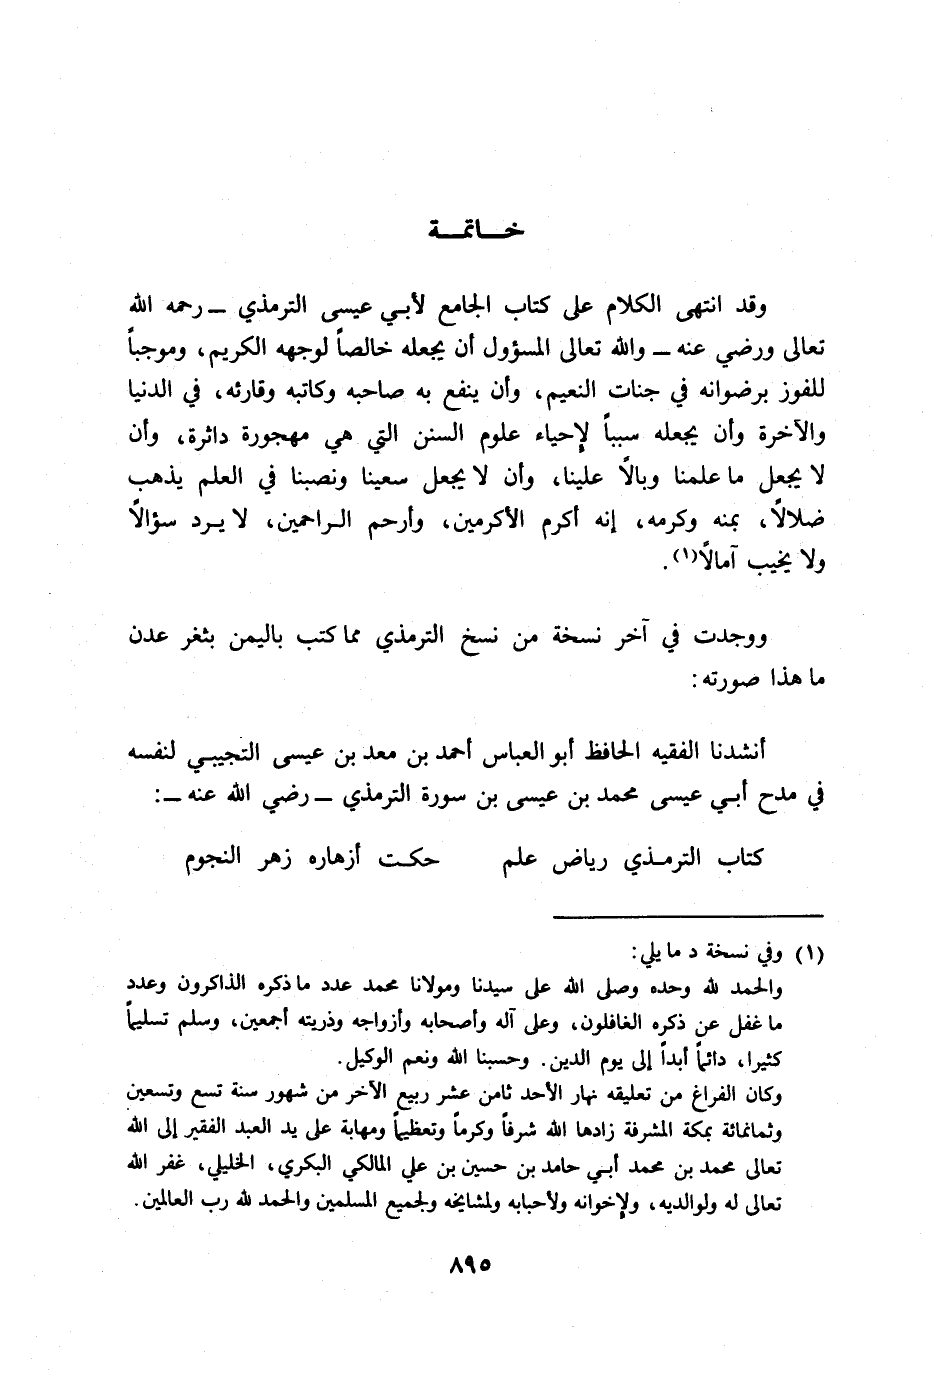 خـــاتمـــة
وقد انتهى الكلام على كتاب الجامع لأبـي عيسى الترمذي ــ رحمه الله
تعالى ورضي عنه ــ والله تعالى المسؤول أن يجعله خالصاً لوجهه الكريم، وموجباً
للفوز برضوانه في جنات النعيم، وأن ينفع به صاحبه وكاتبه وقارئه، في الدنيا
والآخرة وأن يجعله سبباً لإحياء علوم السنن التي هي مهجورة داثرة، وأن
لا يجعل ما علمنا وبالًا علينا، وأن لا يجعل سعينا ونصبنا في العلم يذهب
ضلالًا، بمنه وكرمه، إنه أكرم الأكرمين، وأرحم الـراحمين، لا يـرد سؤالًا
ولا يخيب آمالًا(١).
ووجدت في آخر نسخة من نسخ الترمذي مما كتب باليمن بثغر عدن
ما هذا صورته:
أنشدنا الفقيه الحافظ أبو العباس أحمد بن معد بن عيسى التجيبـي لنفسه
في مدح أبـي عيسى محمد بن عيسى بن سورة الترمذي ــ رضي الله عنه ــ:
كتاب الترمـذي رياض علم حكـت أزهاره زهر النجوم
(١) وفي نسخة د ما يلي:
والحمد لله وحده وصلى الله على سيدنا ومولانا محمد عدد ما ذكره الذاكرون وعدد
ما غفل عن ذكره الغافلون، وعلى آله وأصحابه وأزواجه وذريته أجمعين، وسلم تسليماً
كثيرا، دائماً أبداً إلى يوم الدين. وحسبنا الله ونعم الوكيل.
وكان الفراغ من تعليقه نهار الأحد ثامن عشر ربيع الآخر من شهور سنة تسع وتسعين
وثمانمائة بمكة المشرفة زادها الله شرفاً وكرماً وتعظيماً ومهابة على يد العبد الفقير إلى الله
تعالى محمد بن محمد أبـي حامد بن حسين بن علي المالكي البكري، الخليلي، غفر الله
تعالى له ولوالديه، ولإخوانه ولأحبابه ولمشايخه ولجميع المسلمين والحمد لله رب العالمين.
٨٩٥